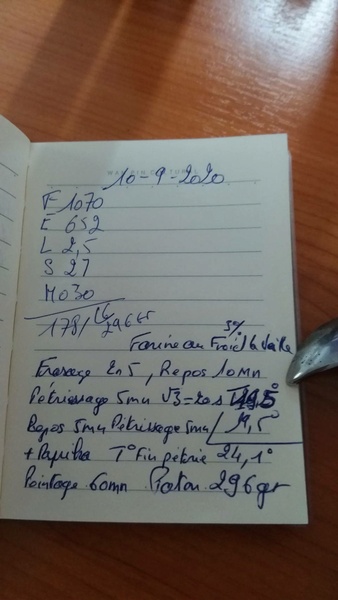 10-9-2020
F 1070
E 652
L 2,5
S 27
H030
178/
Farine au Froid la Veille
Frasage En 5, Repos 10mn
Pétrissage 5mn V3 =
Repos 5mn Pétrissage 5mn
+ Paprika T° Fin pétrie 24,1°
Pointage 60mn Paton 296gr